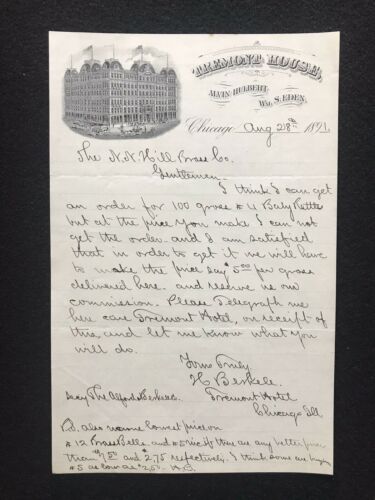 TREMONT HOUSE,
ALVIN HULBERT,
WM. S. EDEN.
Chicago Aug 28th 1891
The N. N. Hill Brass Co.
Gentlemen.
I think I can get
an order for 100 gross # 4 Baby Rattles
but at the price you make I can not
get the order. and I am satisfied
that in order to get it we will have
to make the price say $5.00 per gross
delivered here. and reserve us our
commission. Please Telegraph me
here care Tremont Hotel, on receipt of
this, and let me know what you
will do.
Yours Truly
H Berkele.
Tremont Hotel
Chicago Ill
also name lowest price on
# 12 Brass Bells and # 5 nic if there are any better price
than $7.50 and 2.75 respectively. I think some are buying
# 5 as low as $2.50. H.B.